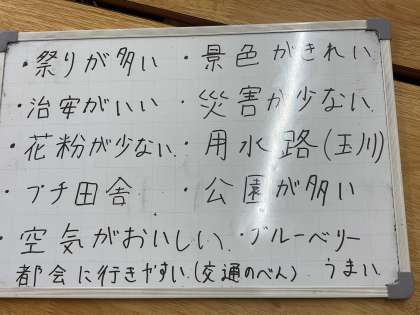 ・祭りが多い ・景色がきれい
・治安がいい ・災害が少ない
・花粉が少ない ・用水路(玉川)
・プチ田舎 ・公園が多い
・空気がおいしい ・ブルーベリー
都会に行きやすい(交通のべん) うまい